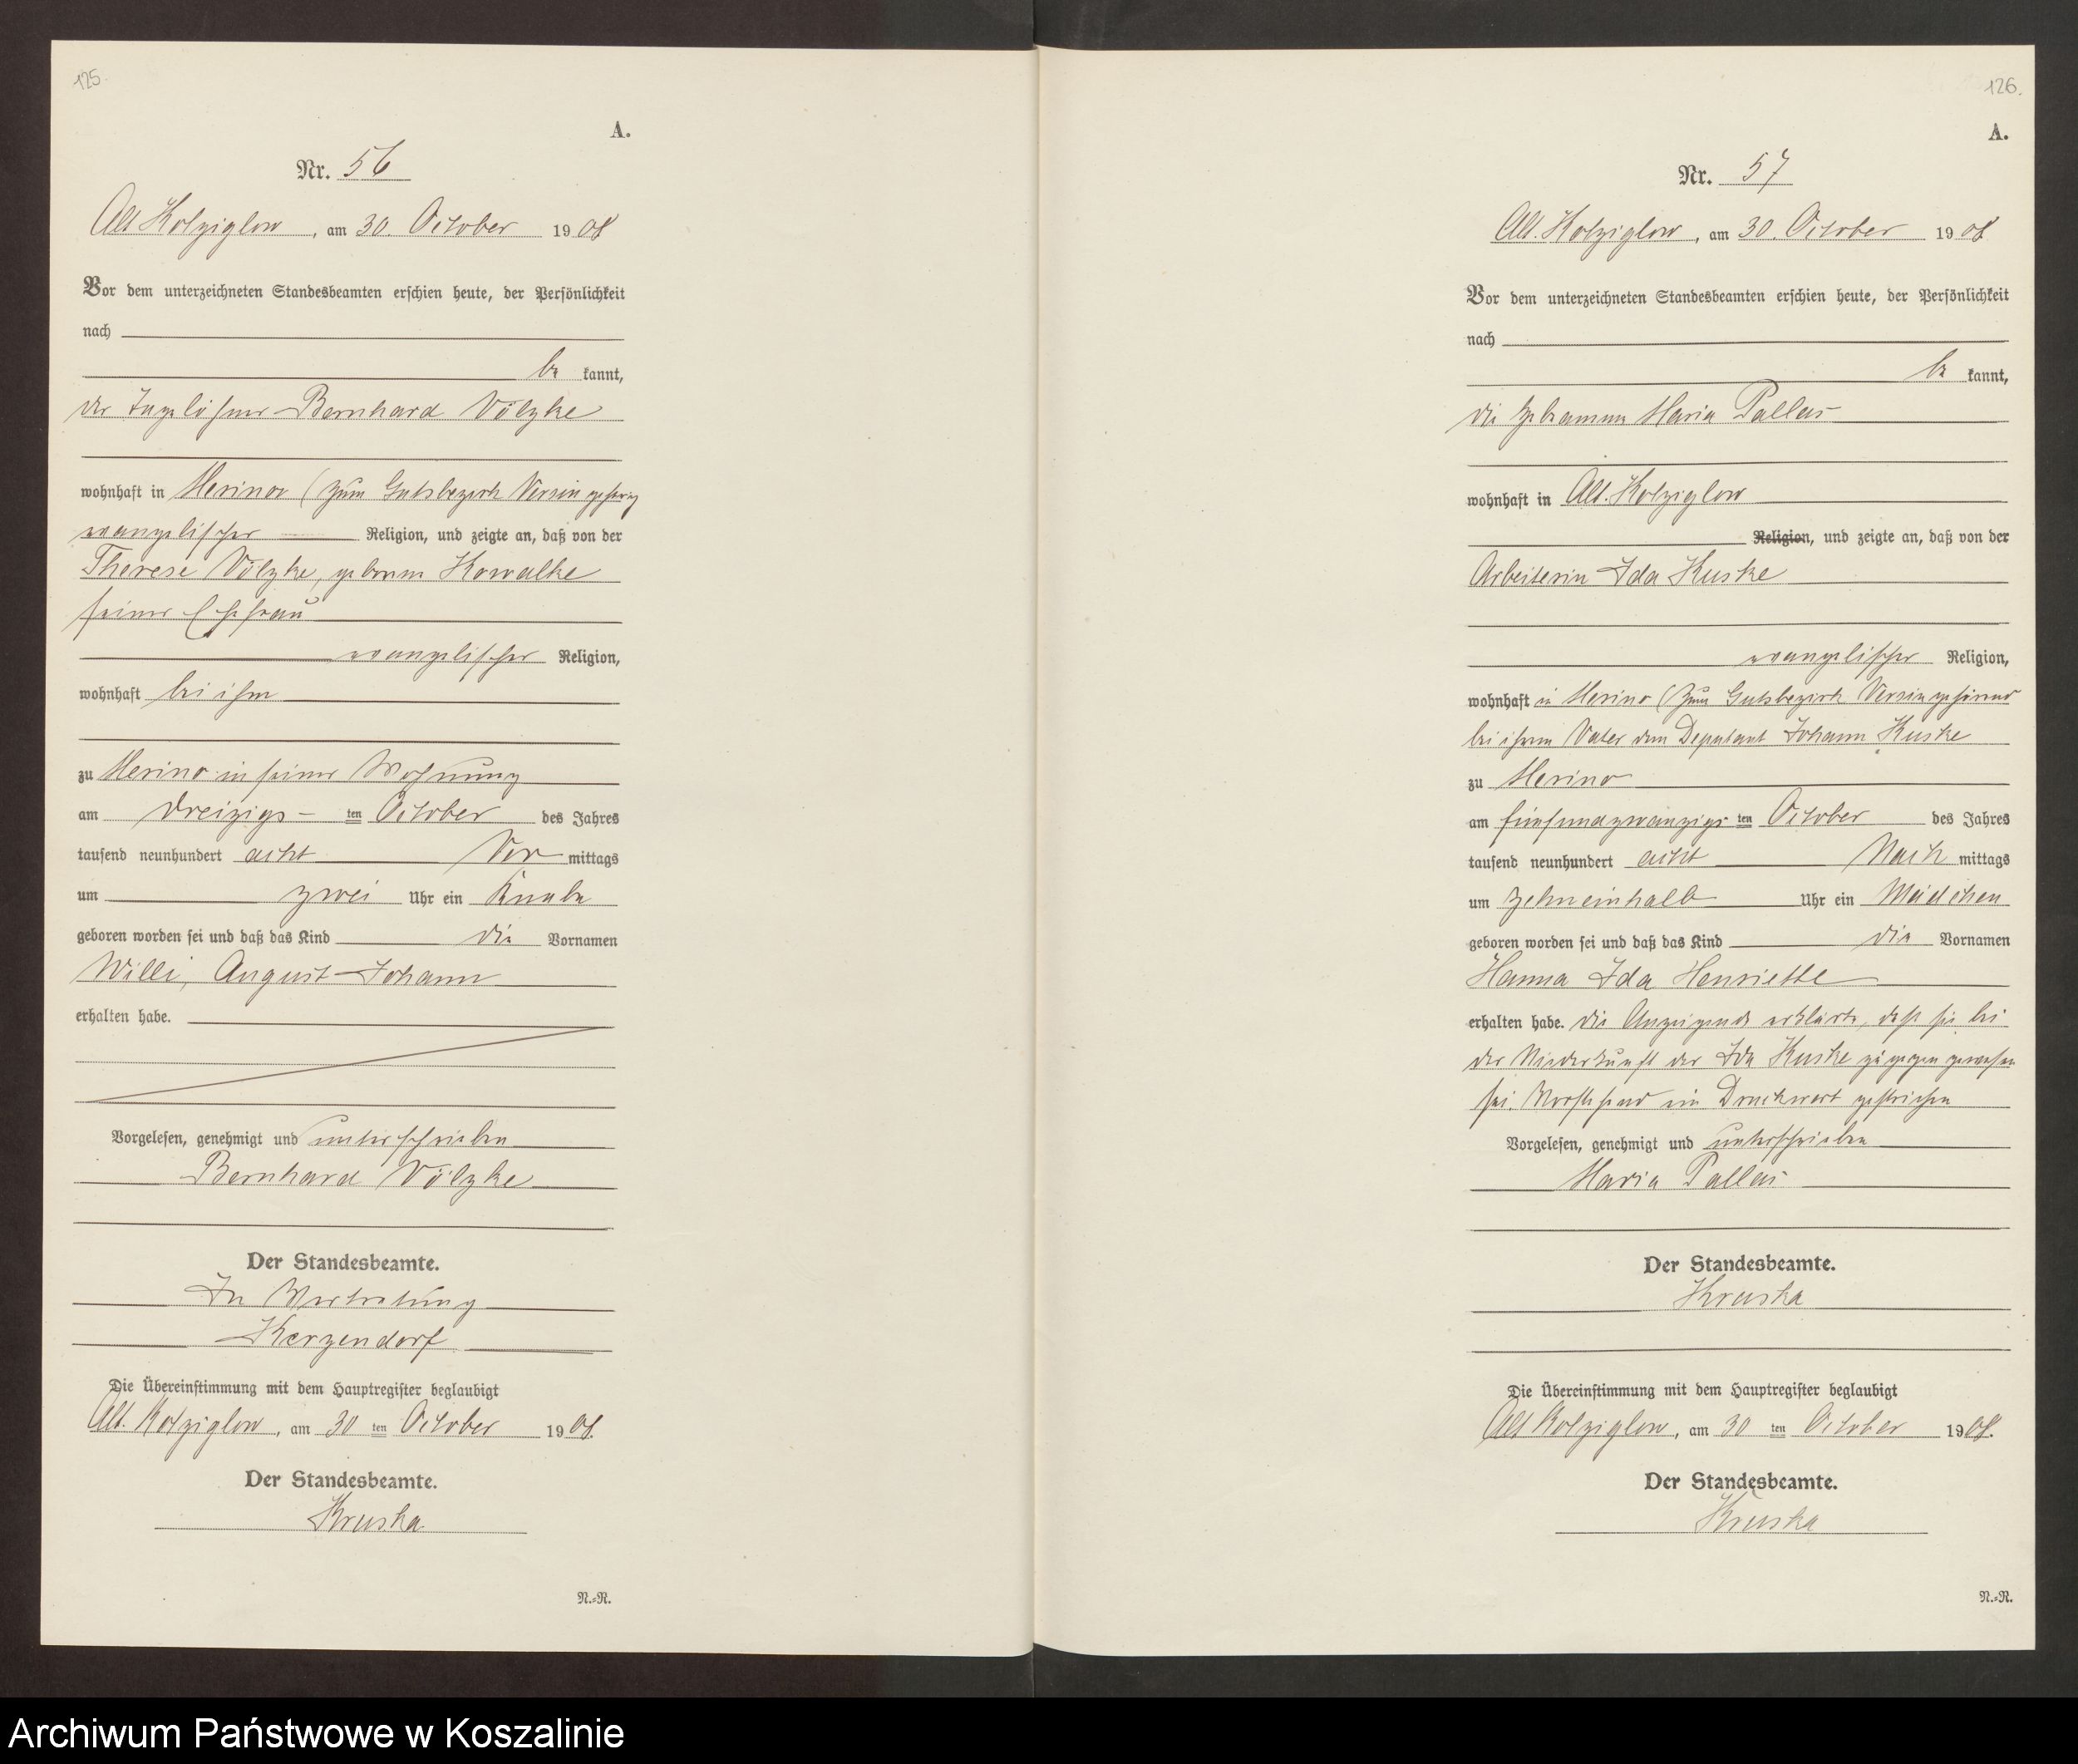 125.
A.
Nr. 56
Alt Kolziglow, am 30. October 1908
Vor dem unterzeichneten Standesbeamten erschien heute, der Persönlichkeit
nach
be kannt,
der Tagelöhner Bernhard Völzke
wohnhaft in Merino (zum Gutsbezirk Versin gehörig
evangelischer Religion, und zeigte an, daß von der
Therese Völzke, geborene Kowalke
seiner Ehefrau
evangelischer Religion,
wohnhaft bei ihm
zu Merino in seiner Wohnung
am dreizigs-ten October des Jahres
tausend neunhundert acht Vor mittags
um zwei Uhr ein Knabe
geboren worden sei und daß das Kind die Vornamen
Willi, August Johann
erhalten habe.
Vorgelesen, genehmigt und unterschrieben
Bernhard Völzke
Der Standesbeamte.
In Vertretung
Kerzendorf
Die Übereinstimmung mit dem Hauptregister beglaubigt
Alt. Kolziglow, am 30 ten October 1908.
Der Standesbeamte.
Kruska
N.=R.
126.
A.
Nr. 57
Alt. Kolziglow, am 30. October 1908
Vor dem unterzeichneten Standesbeamten erschien heute, der Persönlichkeit
nach
be kannt,
die Hebamme Maria Pallas
wohnhaft in Alt. Kolziglow
Religion, und zeigte an, daß von der
Arbeiterin Ida Kuske
evangelischer Religion,
wohnhaft in Merino (zum Gutsbezirk Versin gehörend
bei ihrem Vater dem Deputant Johann Kuske
zu Merino
am fünfundzwanzigs ten October des Jahres
tausend neunhundert acht Nach mittags
um zehneinhalb Uhr ein Mädchen
geboren worden sei und daß das Kind die Vornamen
Hanna Ida Henriette
erhalten habe. Die Anzeigende erklärte, daß sie bei
der Niederkunft der Ida Kuske zugegen gewesen
sei. Vorstehend ein Druckwort gestrichen
Vorgelesen, genehmigt und unterschrieben
Maria Pallas
Der Standesbeamte.
Kruska
Die Übereinstimmung mit dem Hauptregister beglaubigt
Alt Kolziglow, am 30 ten October 1908.
Der Standesbeamte.
Kruska
N.=R.
Archiwum Państwowe w Koszalinie